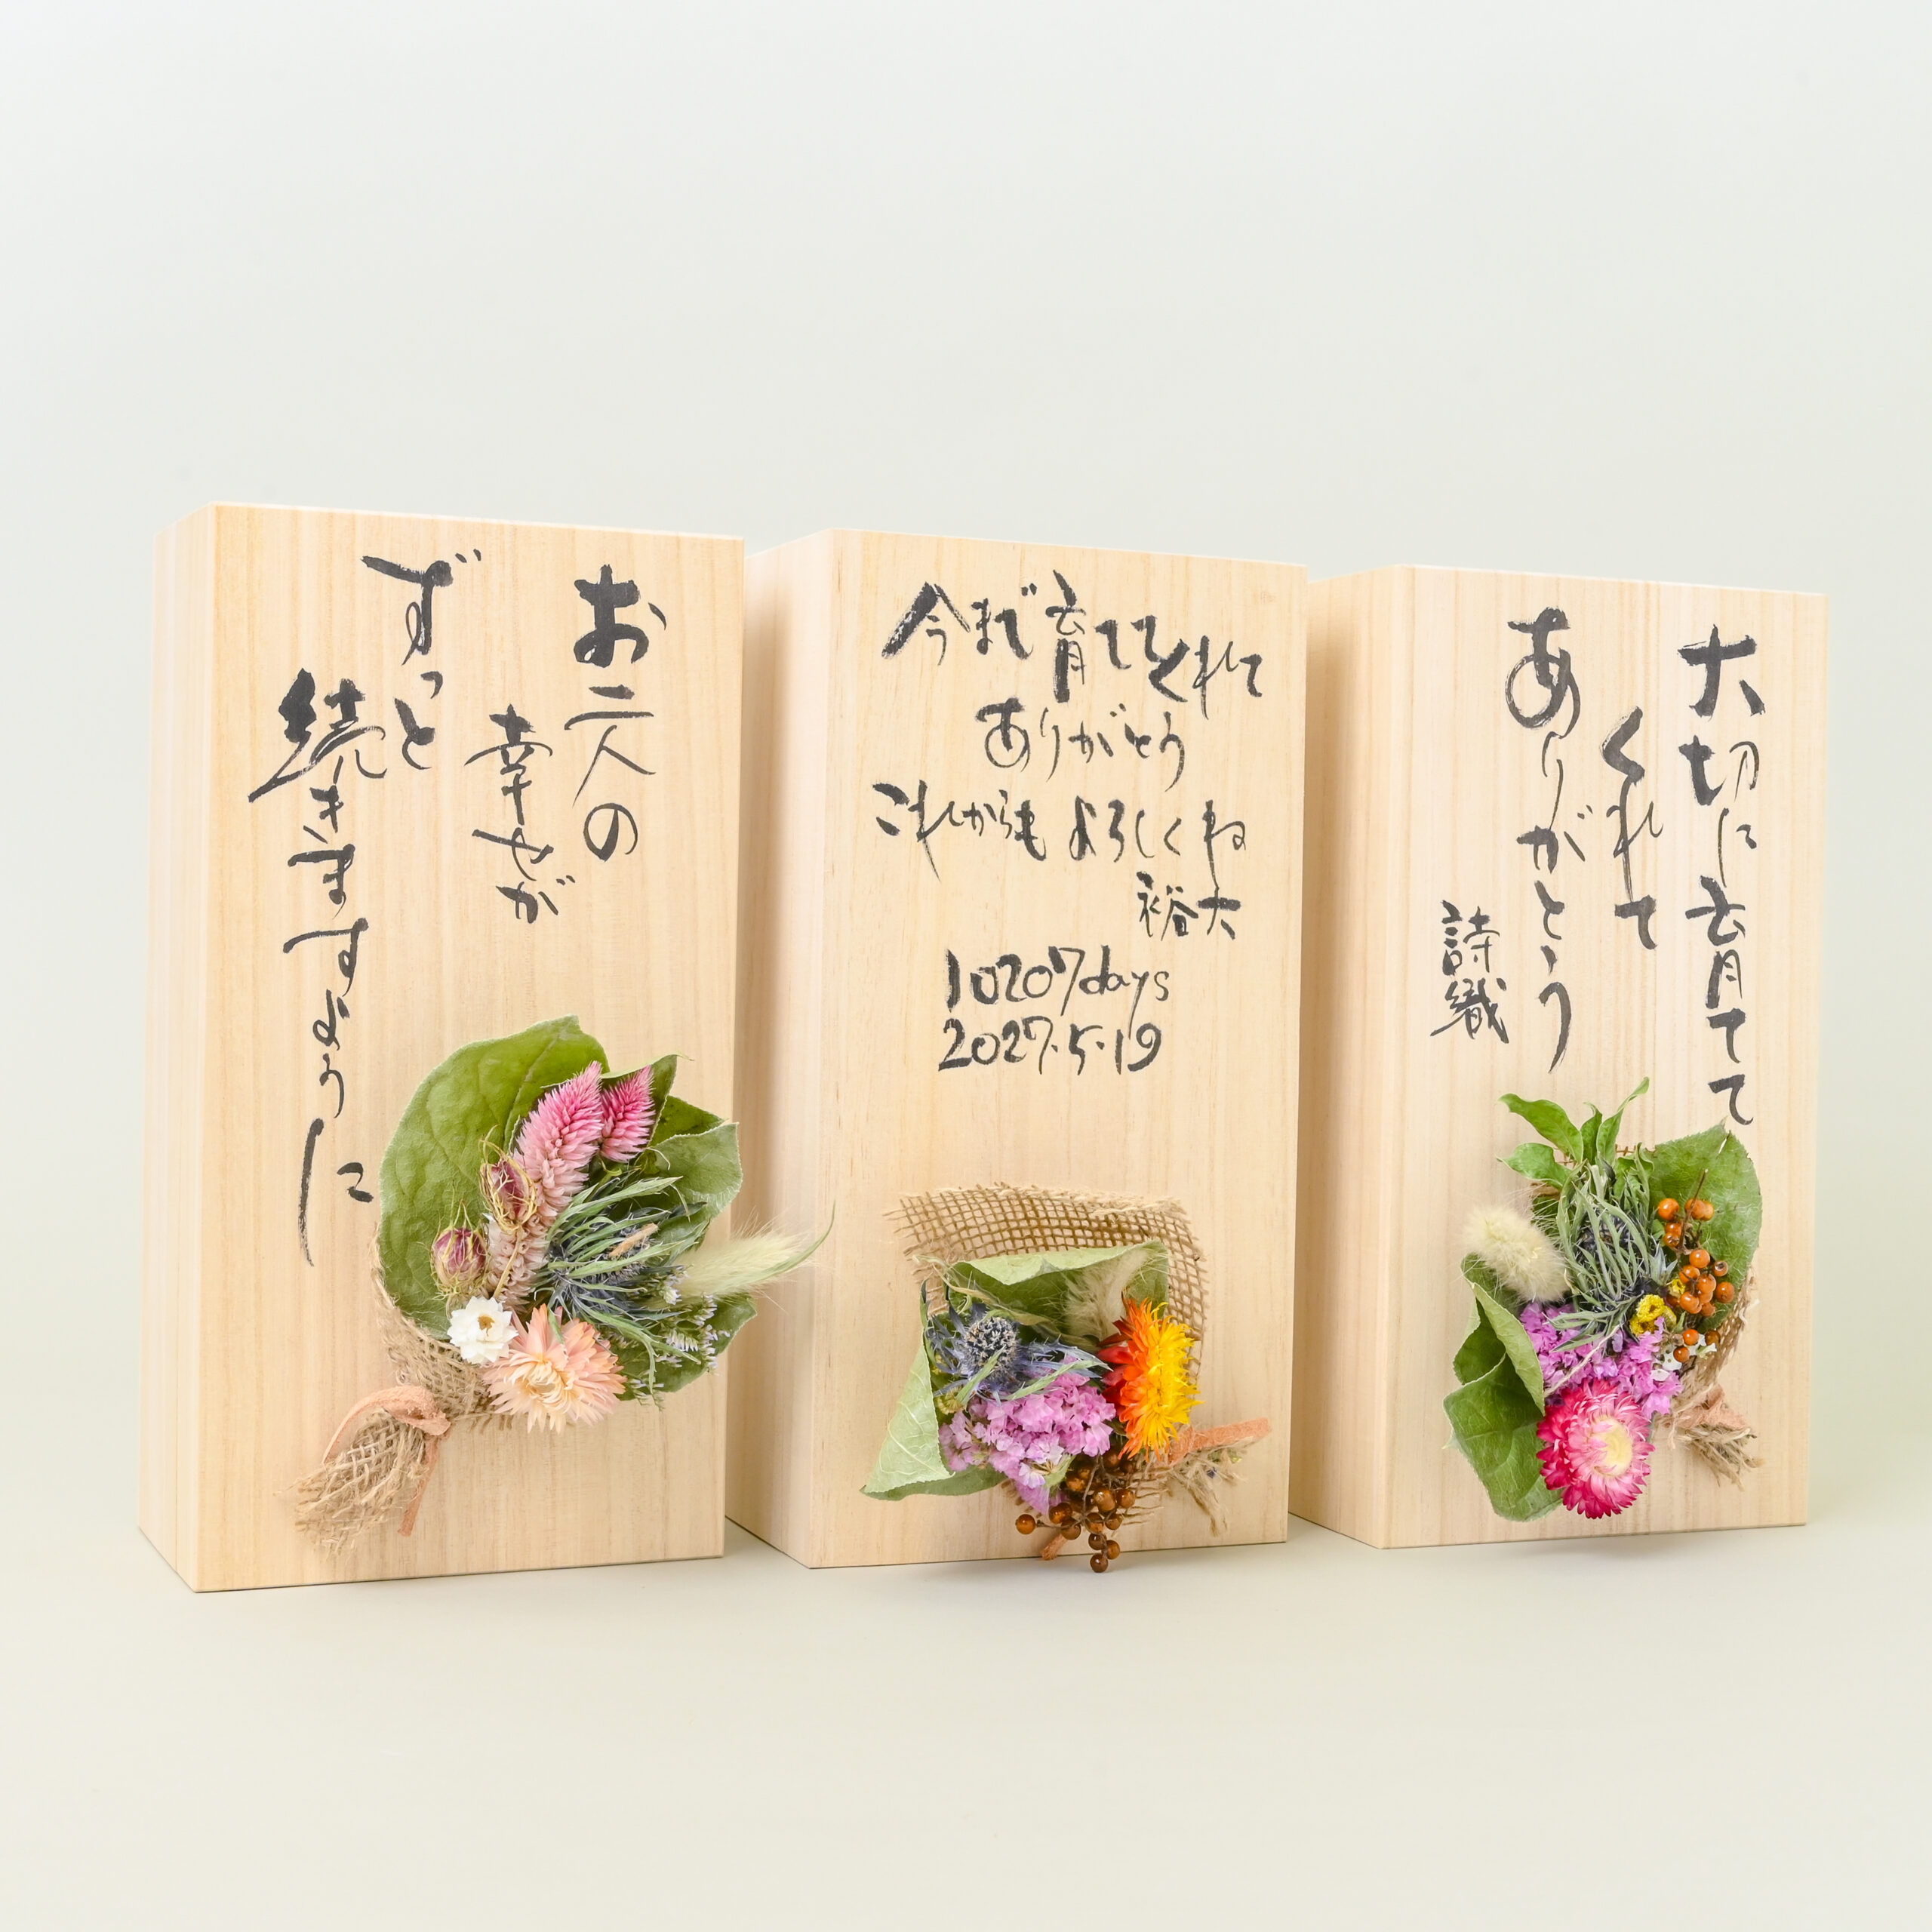 お二人の
幸せが
ずっと
続きますように
今まで育ててくれて
ありがとう
これからもよろしくね
裕大
10207days
2027.5.19
大切に育てて
くれて
ありがとう
詩織